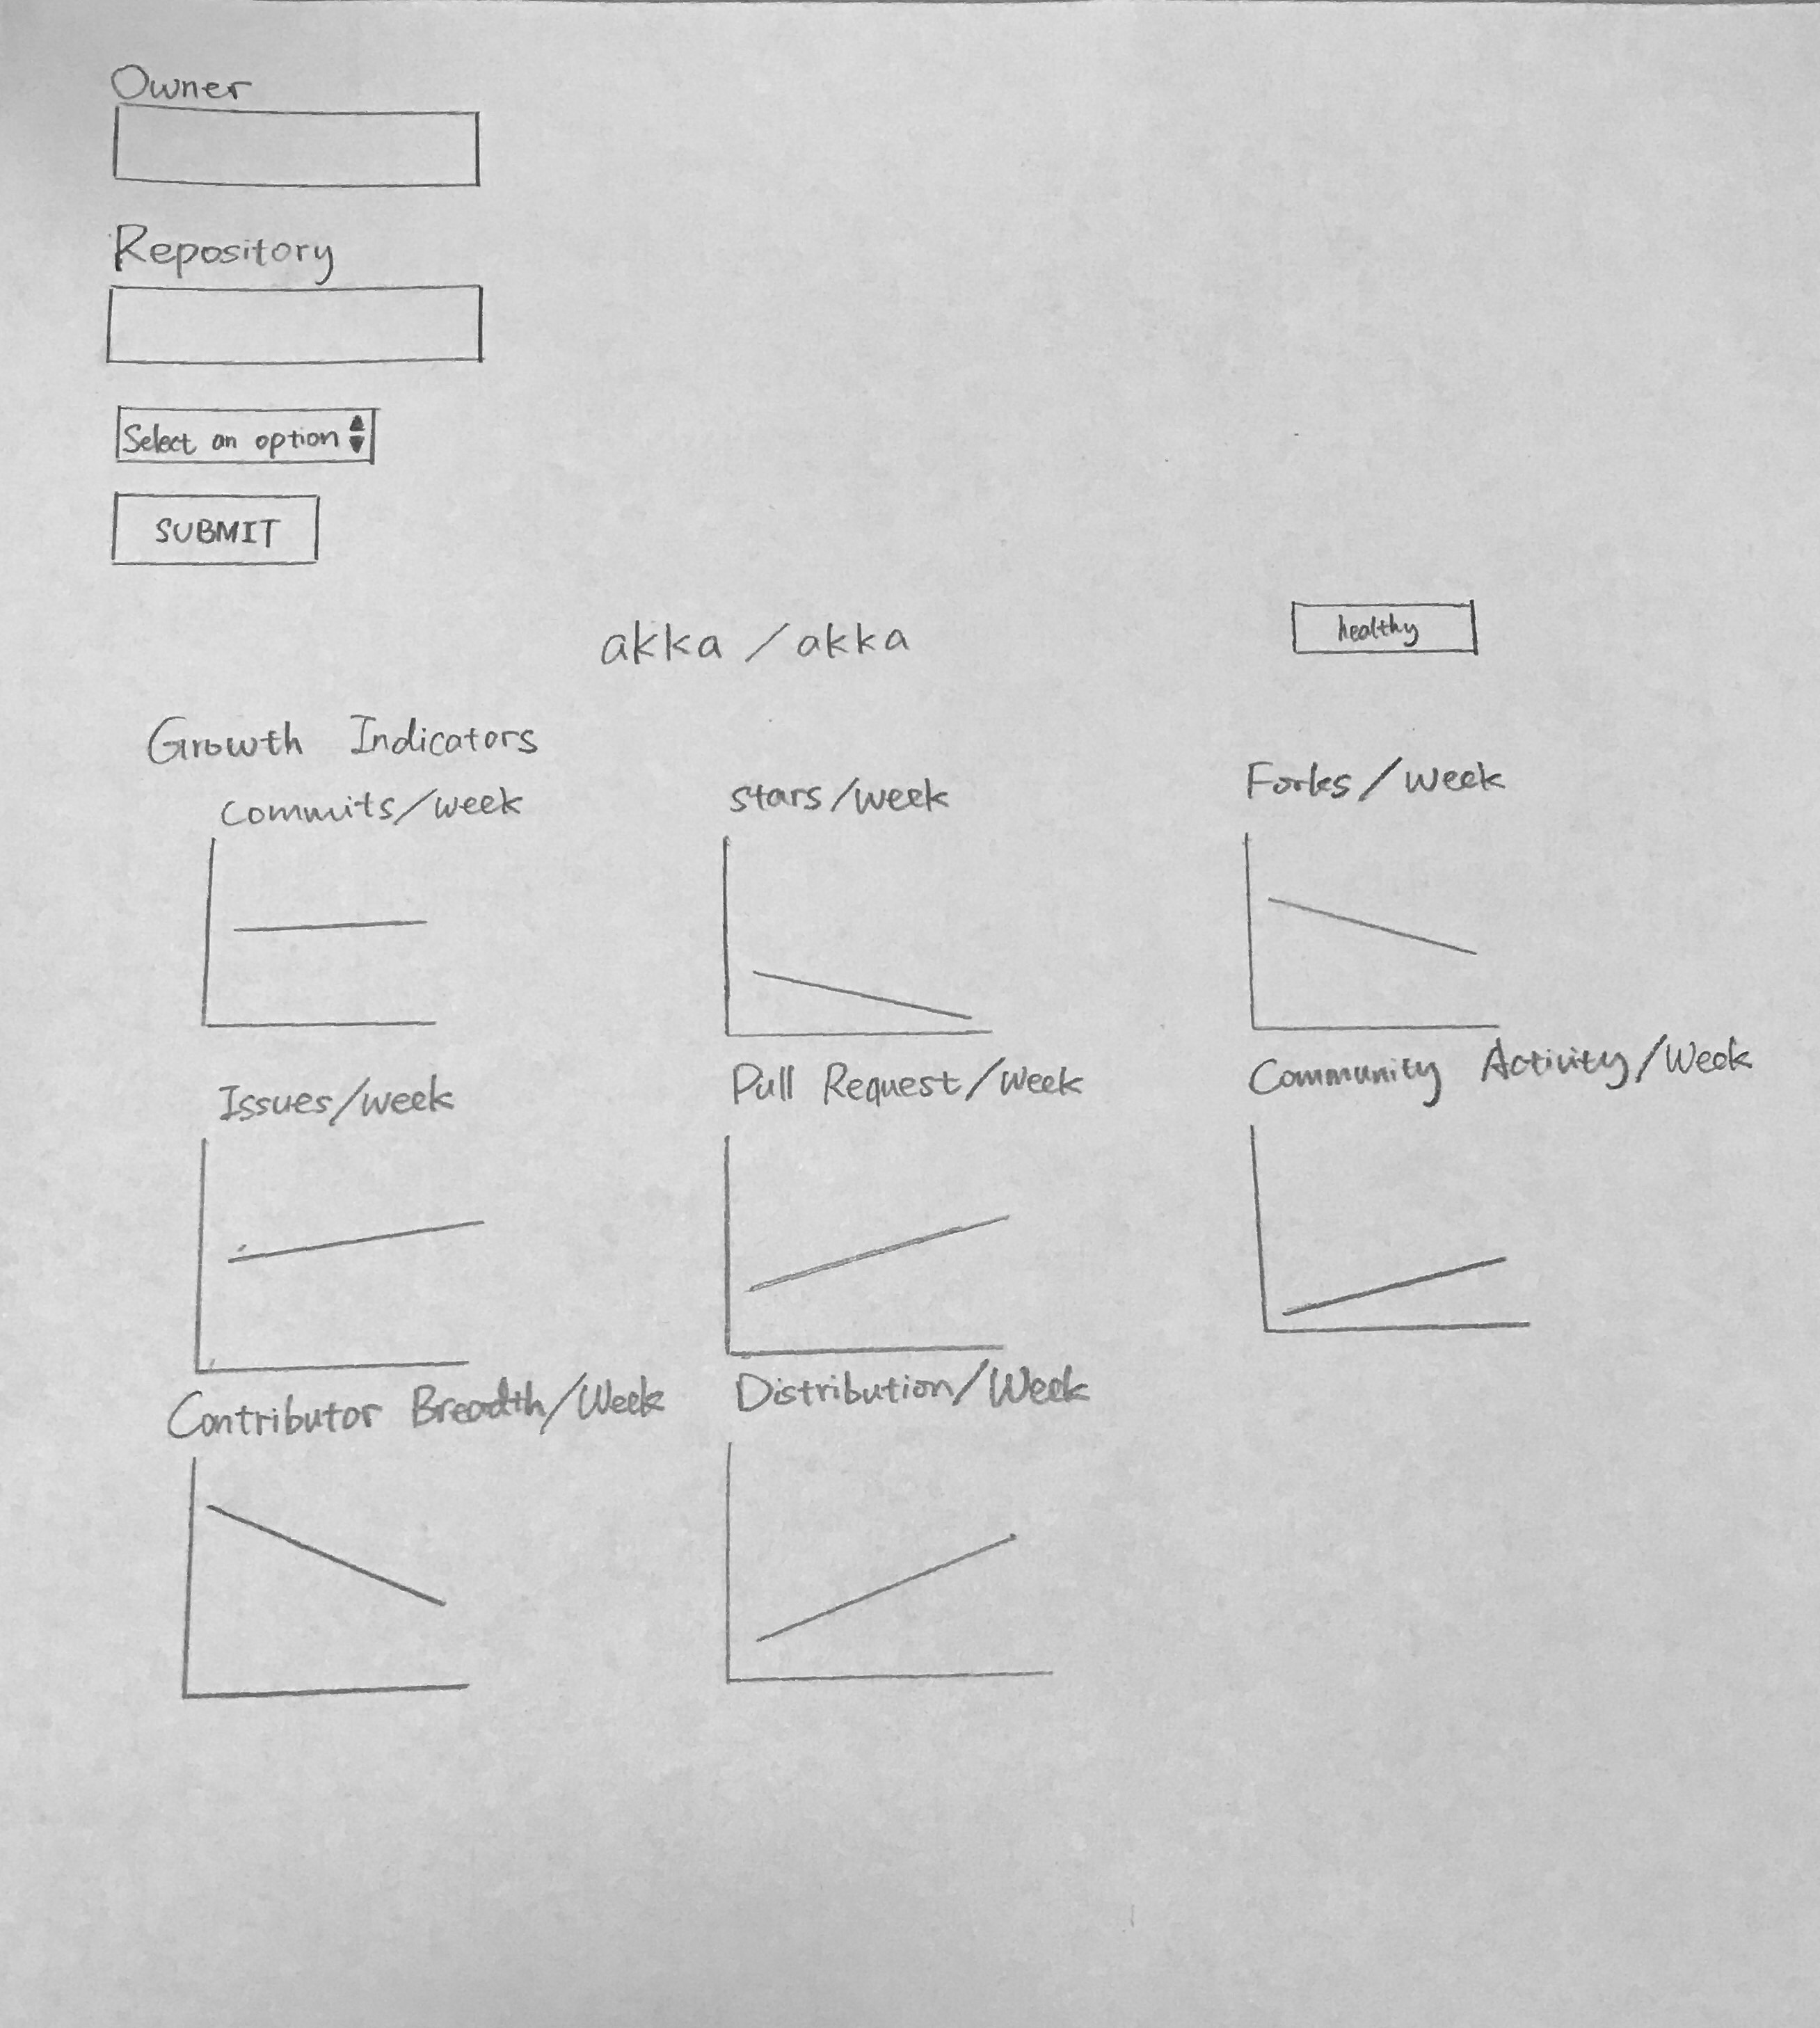 Owner
Repository
Select an option
SUBMIT
akka / akka
healthy
Growth Indicators
Commits/week
stars/week
Forks/week
Issues/week
Pull Request/week
Community Activity/Week
Contributor Breadth/Week
Distribution/Week